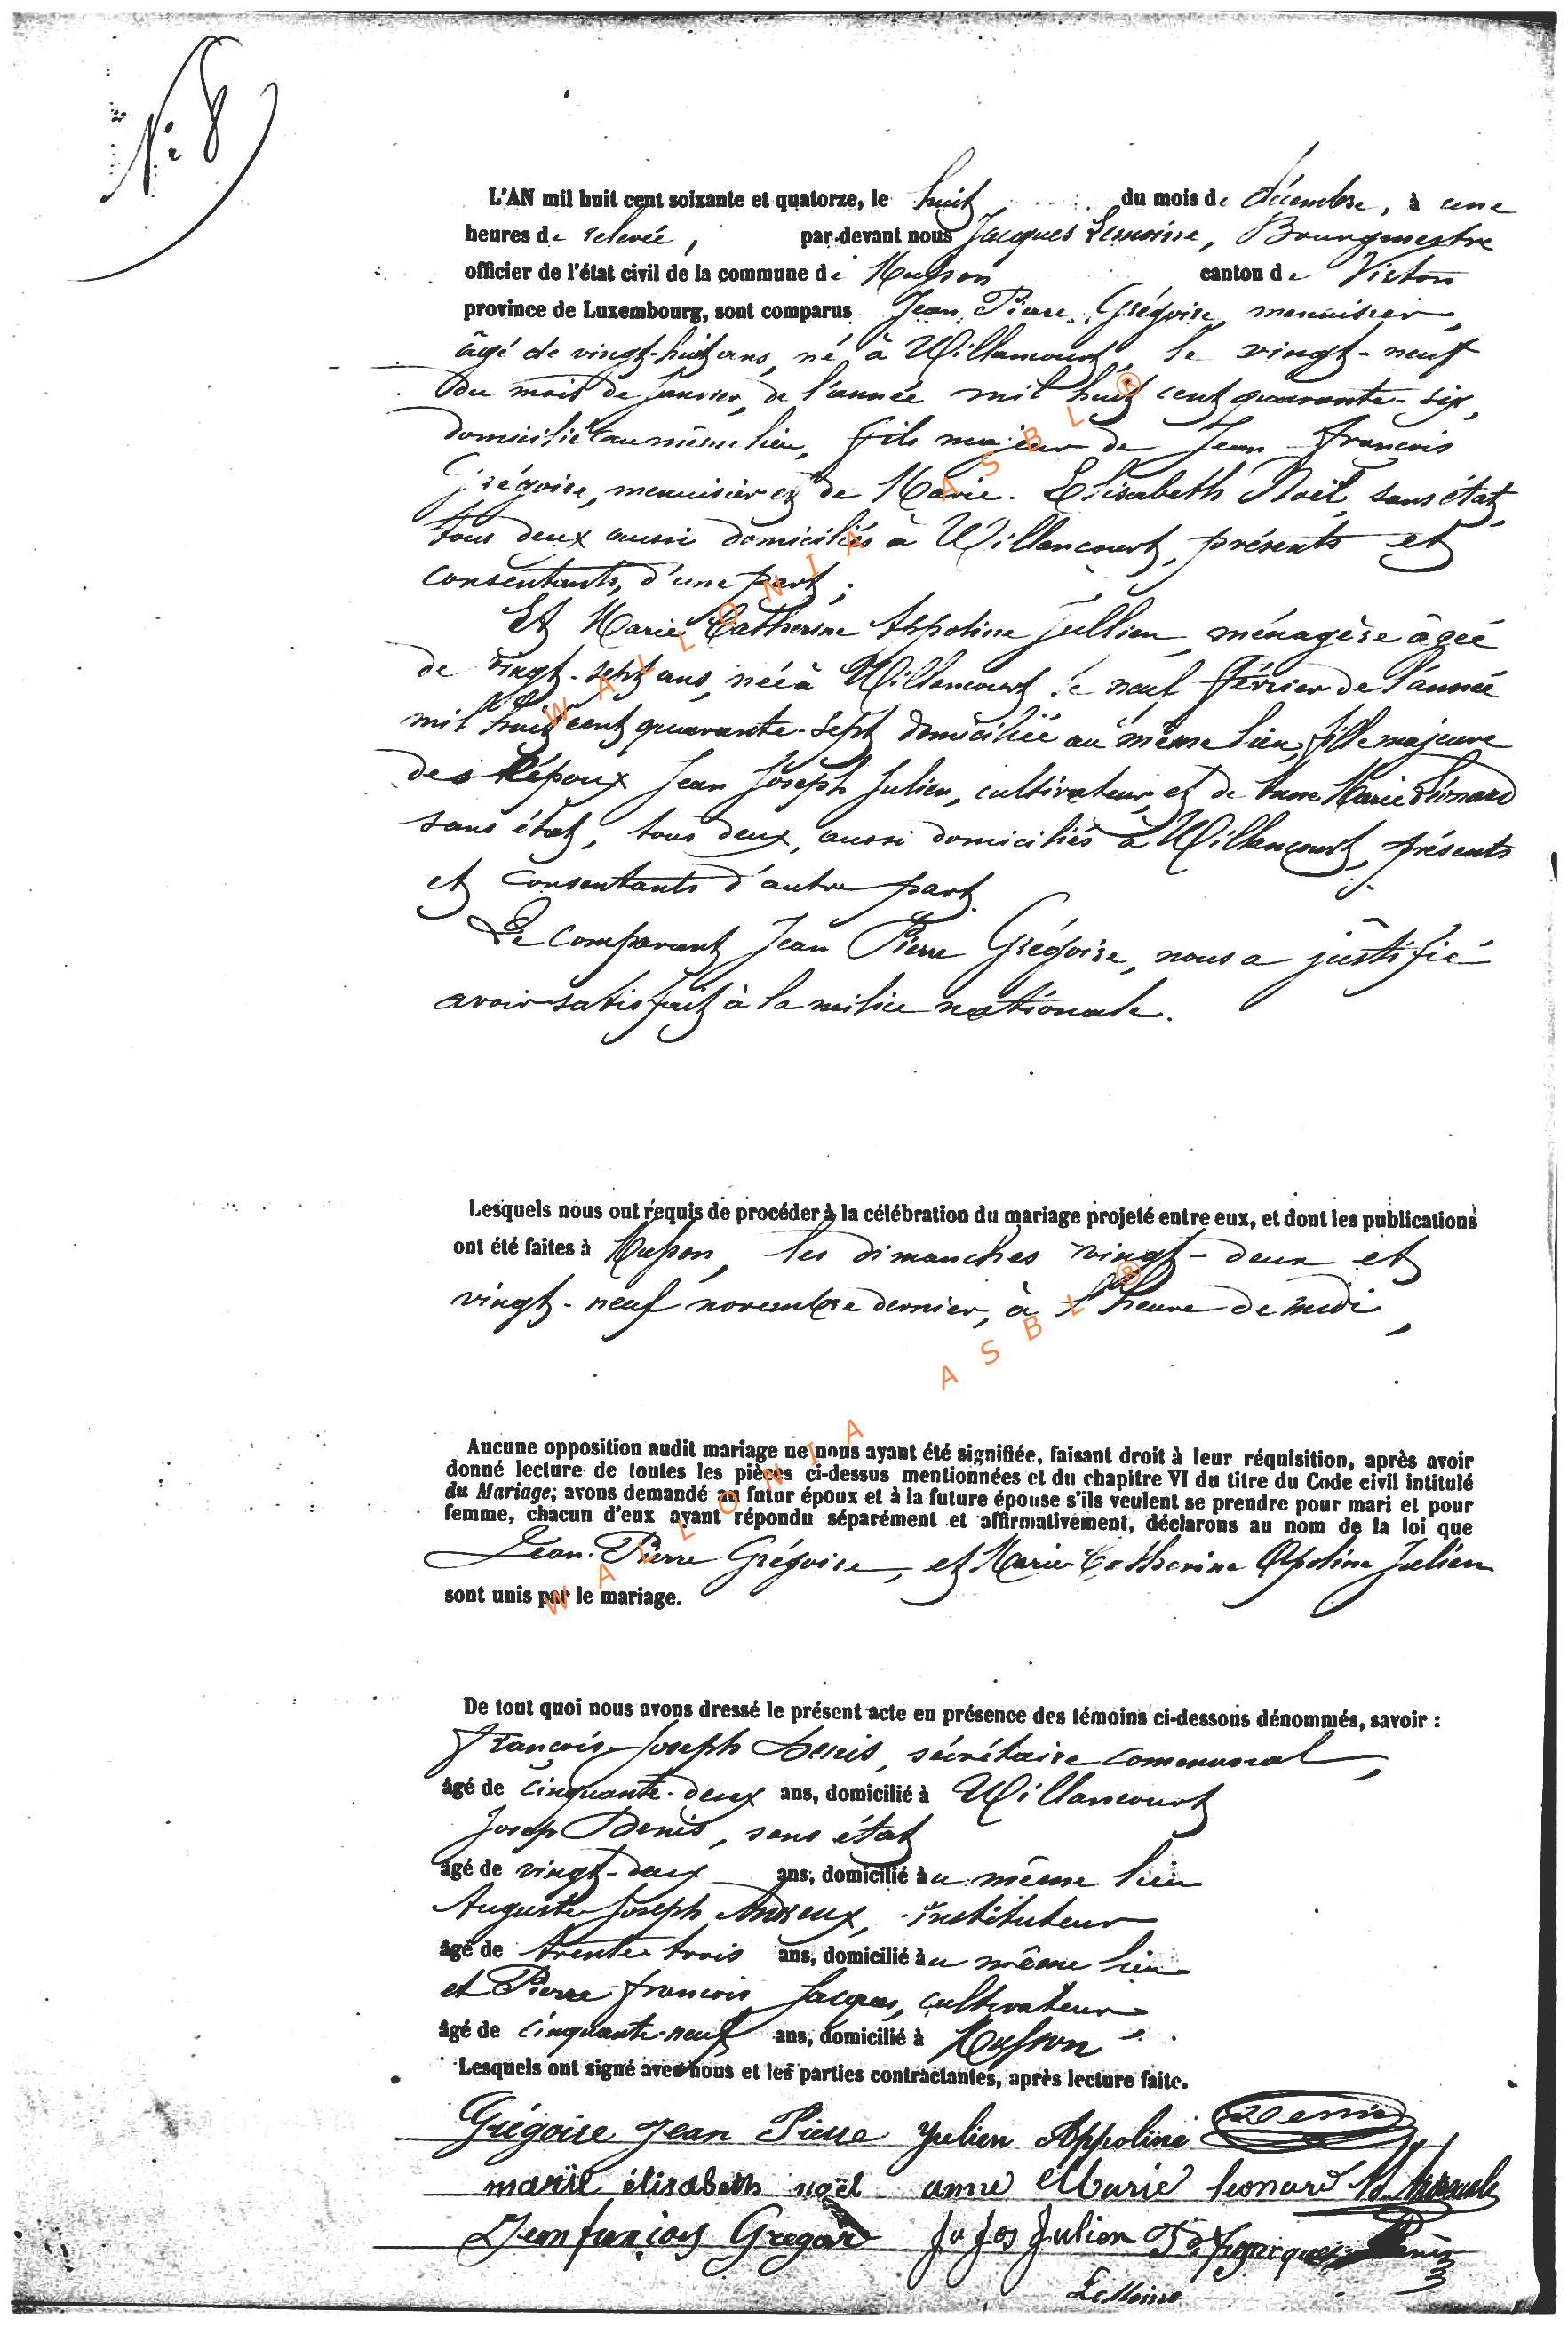 N° 8
L'AN mil huit cent soixante et quatorze, le huit du mois de décembre, à une
heures de relevée, par-devant nous Jacques Lemoine, Bourgmestre
officier de l'état civil de la commune de Musson canton de Virton
province de Luxembourg, sont comparus Jean Pierre Grégoire, menuisier,
âgé de vingt-huit ans, né à Willancourt, le vingt-neuf
du mois de Janvier, de l'année mil huit cent quarante-six,
domicilié au même lieu, fils majeur de Jean François
Grégoire, menuisier et de Marie Elisabeth Noël, sans état,
tous deux aussi domiciliés à Willancourt, présents et
consentants, d'une part;
Et Marie Catherine Appoline Jullien, ménagère âgée
de vingt-sept ans, née à Willancourt le neuf février de l'année
mil huit cent quarante-sept domiciliée au même lieu, fille majeure
des époux Jean Joseph Julien, cultivateur, et de Anne Marie Léonard
sans état, tous deux, aussi domiciliés à Willancourt, présents
et consentants d'autre part.
Le comparant Jean Pierre Grégoire, nous a justifié
avoir satisfait à la milice nationale.
Lesquels nous ont requis de procéder à la célébration du mariage projeté entre eux, et dont les publications
ont été faites à Musson, les dimanches vingt-deux et
vingt-neuf novembre dernier, à l'heure de midi,
Aucune opposition audit mariage ne nous ayant été signifiée, faisant droit à leur réquisition, après avoir
donné lecture de toutes les pièces ci-dessus mentionnées et du chapitre VI du titre du Code civil intitulé
du Mariage; avons demandé au futur époux et à la future épouse s'ils veulent se prendre pour mari et pour
femme, chacun d'eux ayant répondu séparément et affirmativement, déclarons au nom de la loi que
Jean-Pierre Grégoire, et Marie Catherine Apoline Julien
sont unis par le mariage.
De tout quoi nous avons dressé le présent acte en présence des témoins ci-dessous dénommés, savoir :
François Joseph Denis, sécrétaire communal,
âgé de cinquante-deux ans, domicilié à Willancourt
Josep Denis, sans état
âgé de vingt-deux ans, domicilié à u même lieu
Auguste Joseph Andreux, instituteur
âgé de trente trois ans, domicilié à u même lieu
et Pierre François Jacques, cultivateur
âgé de cinquante-neuf ans, domicilié à Musson
Lesquels ont signé avec nous et les parties contractantes, après lecture faite.
Grégoire Jean Pierre Julien Appoline Denis
marie élisabeth noël anne Marie leonard
Jean françois Gregoire J Jos Julien Jacques Denis
Lemoine
WALLONIA ASBL ®
WALLONIA ASBL ®